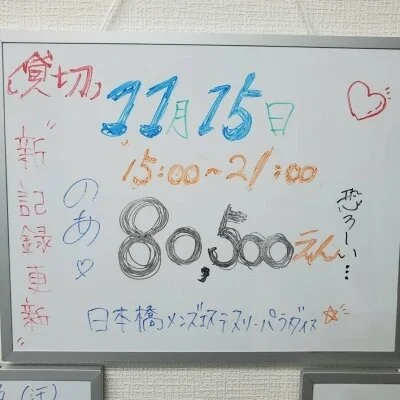 貸切
11月15日
"15:00~21:00
"新記録更新"
のあ♡
80,500えん
恐ろしい…
日本橋メンズエステスリーパラダイス☆